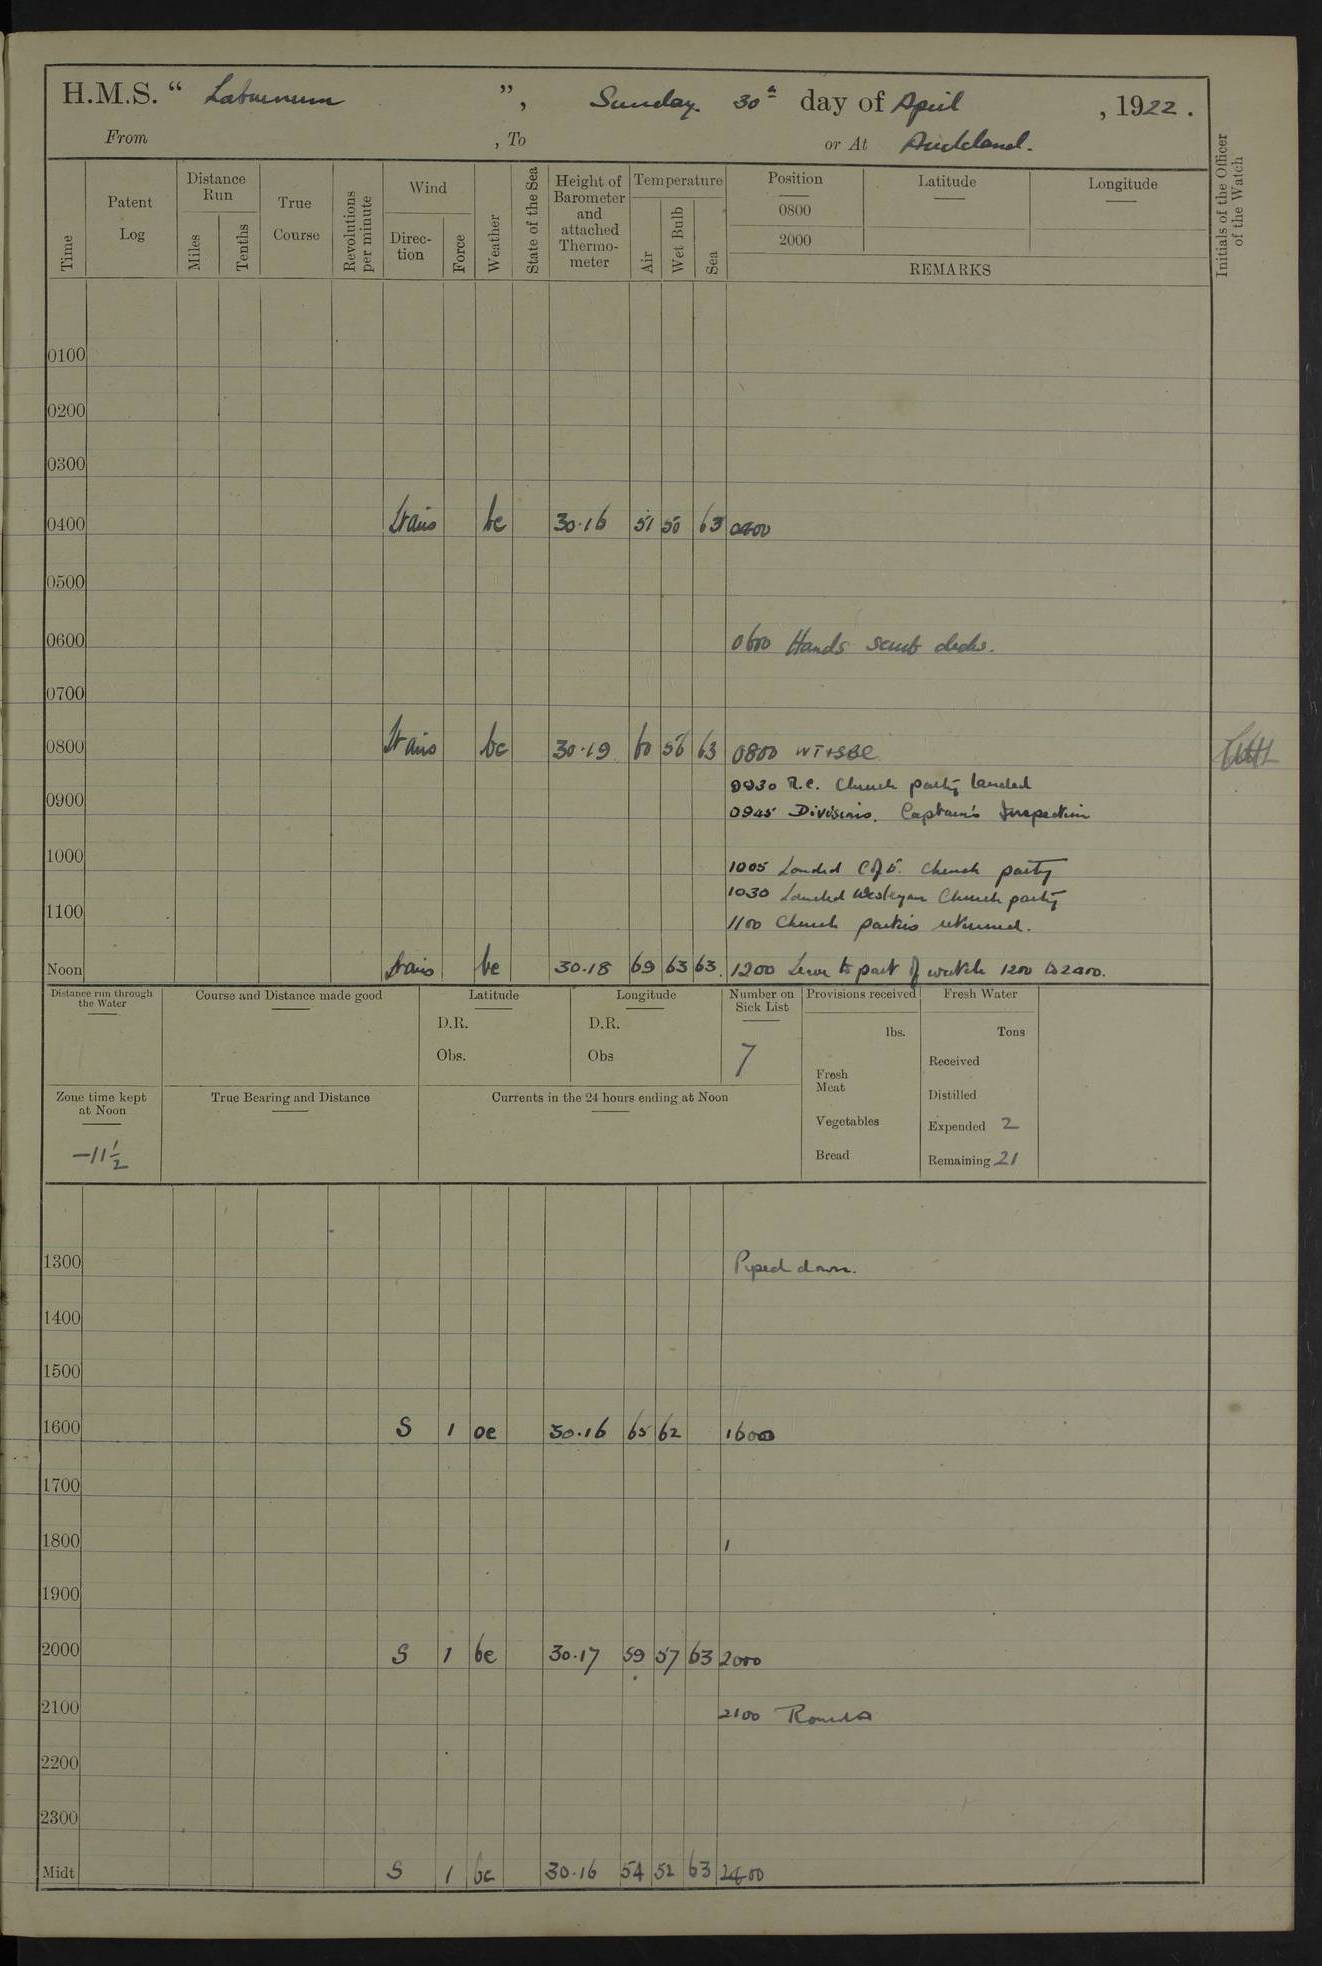 H.M.S. “ Laburnum ”, Sunday 30th day of April, 1922.
From , To or At Auckland.
Time Patent Log Distance Run Miles Tenths True Course Revolutions per minute Wind Direc-tion Force Weather State of the Sea Height of Barometer and attached Thermo-meter Temperature Air Wet Bulb Sea Position 0800 2000 Latitude Longitude
REMARKS
Initials of the Officer of the Watch
0100
0200
0300
0400 bc 30.16 51 50 63 0400
0500
0600 0600 Hands scrub decks.
0700
0800 bc 30.19 60 56 63 0800 WT+SBC
0930 R.C. Church party landed
0900
0945 Divisions. Captain's Inspection
1000
1005 Landed C of E. Church party
1030 Landed Wesleyan Church party
1100
1100 Church parties returned.
Noon bc 30.18 69 63 63. 1200 Leave to part of watch 1200 to 2200.
Distance run through the Water Course and Distance made good Latitude Longitude Number on Sick List Provisions received Fresh Water
D.R. D.R. lbs. Tons
Obs. Obs 7 Received
Fresh Meat
Zone time kept at Noon True Bearing and Distance Currents in the 24 hours ending at Noon Distilled
Vegetables Expended 2
-11½ Bread Remaining 21
1300 Piped down.
1400
1500
1600 S 1 oc 30.16 65 62 1600
1700
1800
1900
2000 S 1 bc 30.17 59 57 63 2000
2100 2100 Rounds
2200
2300
Midt S 1 bc 30.16 54 52 63 2400